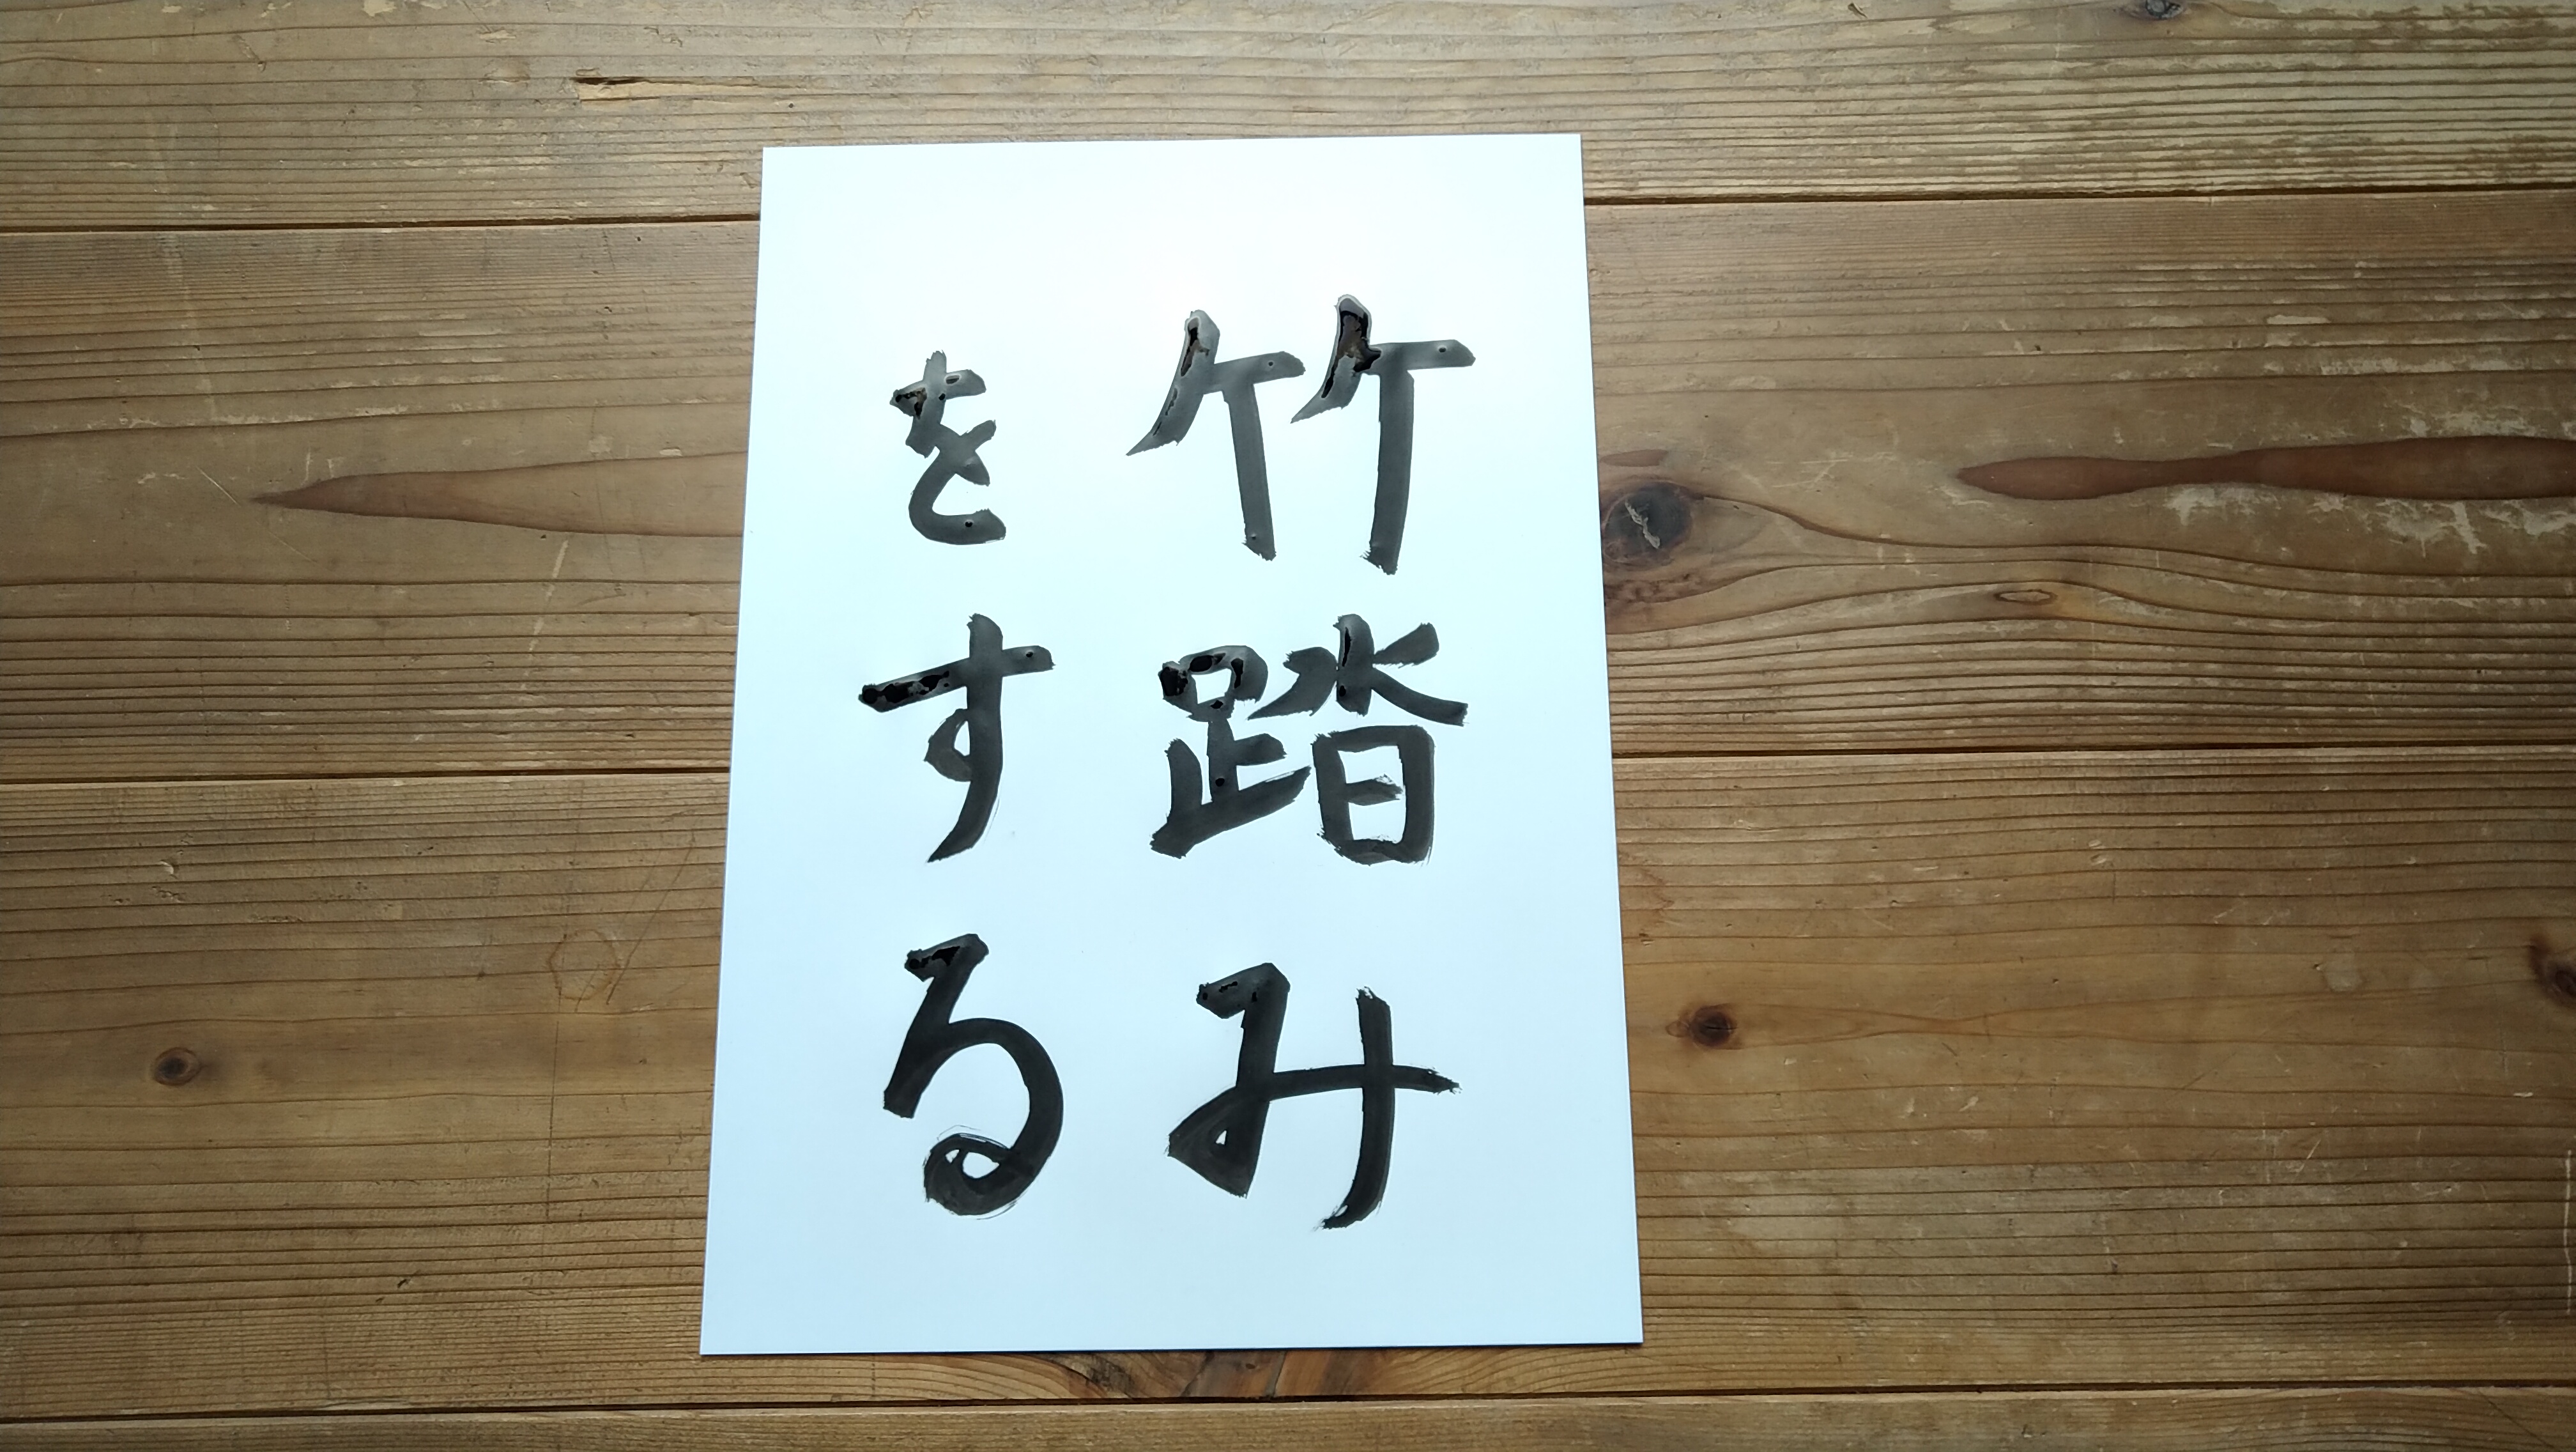 竹踏み
をする